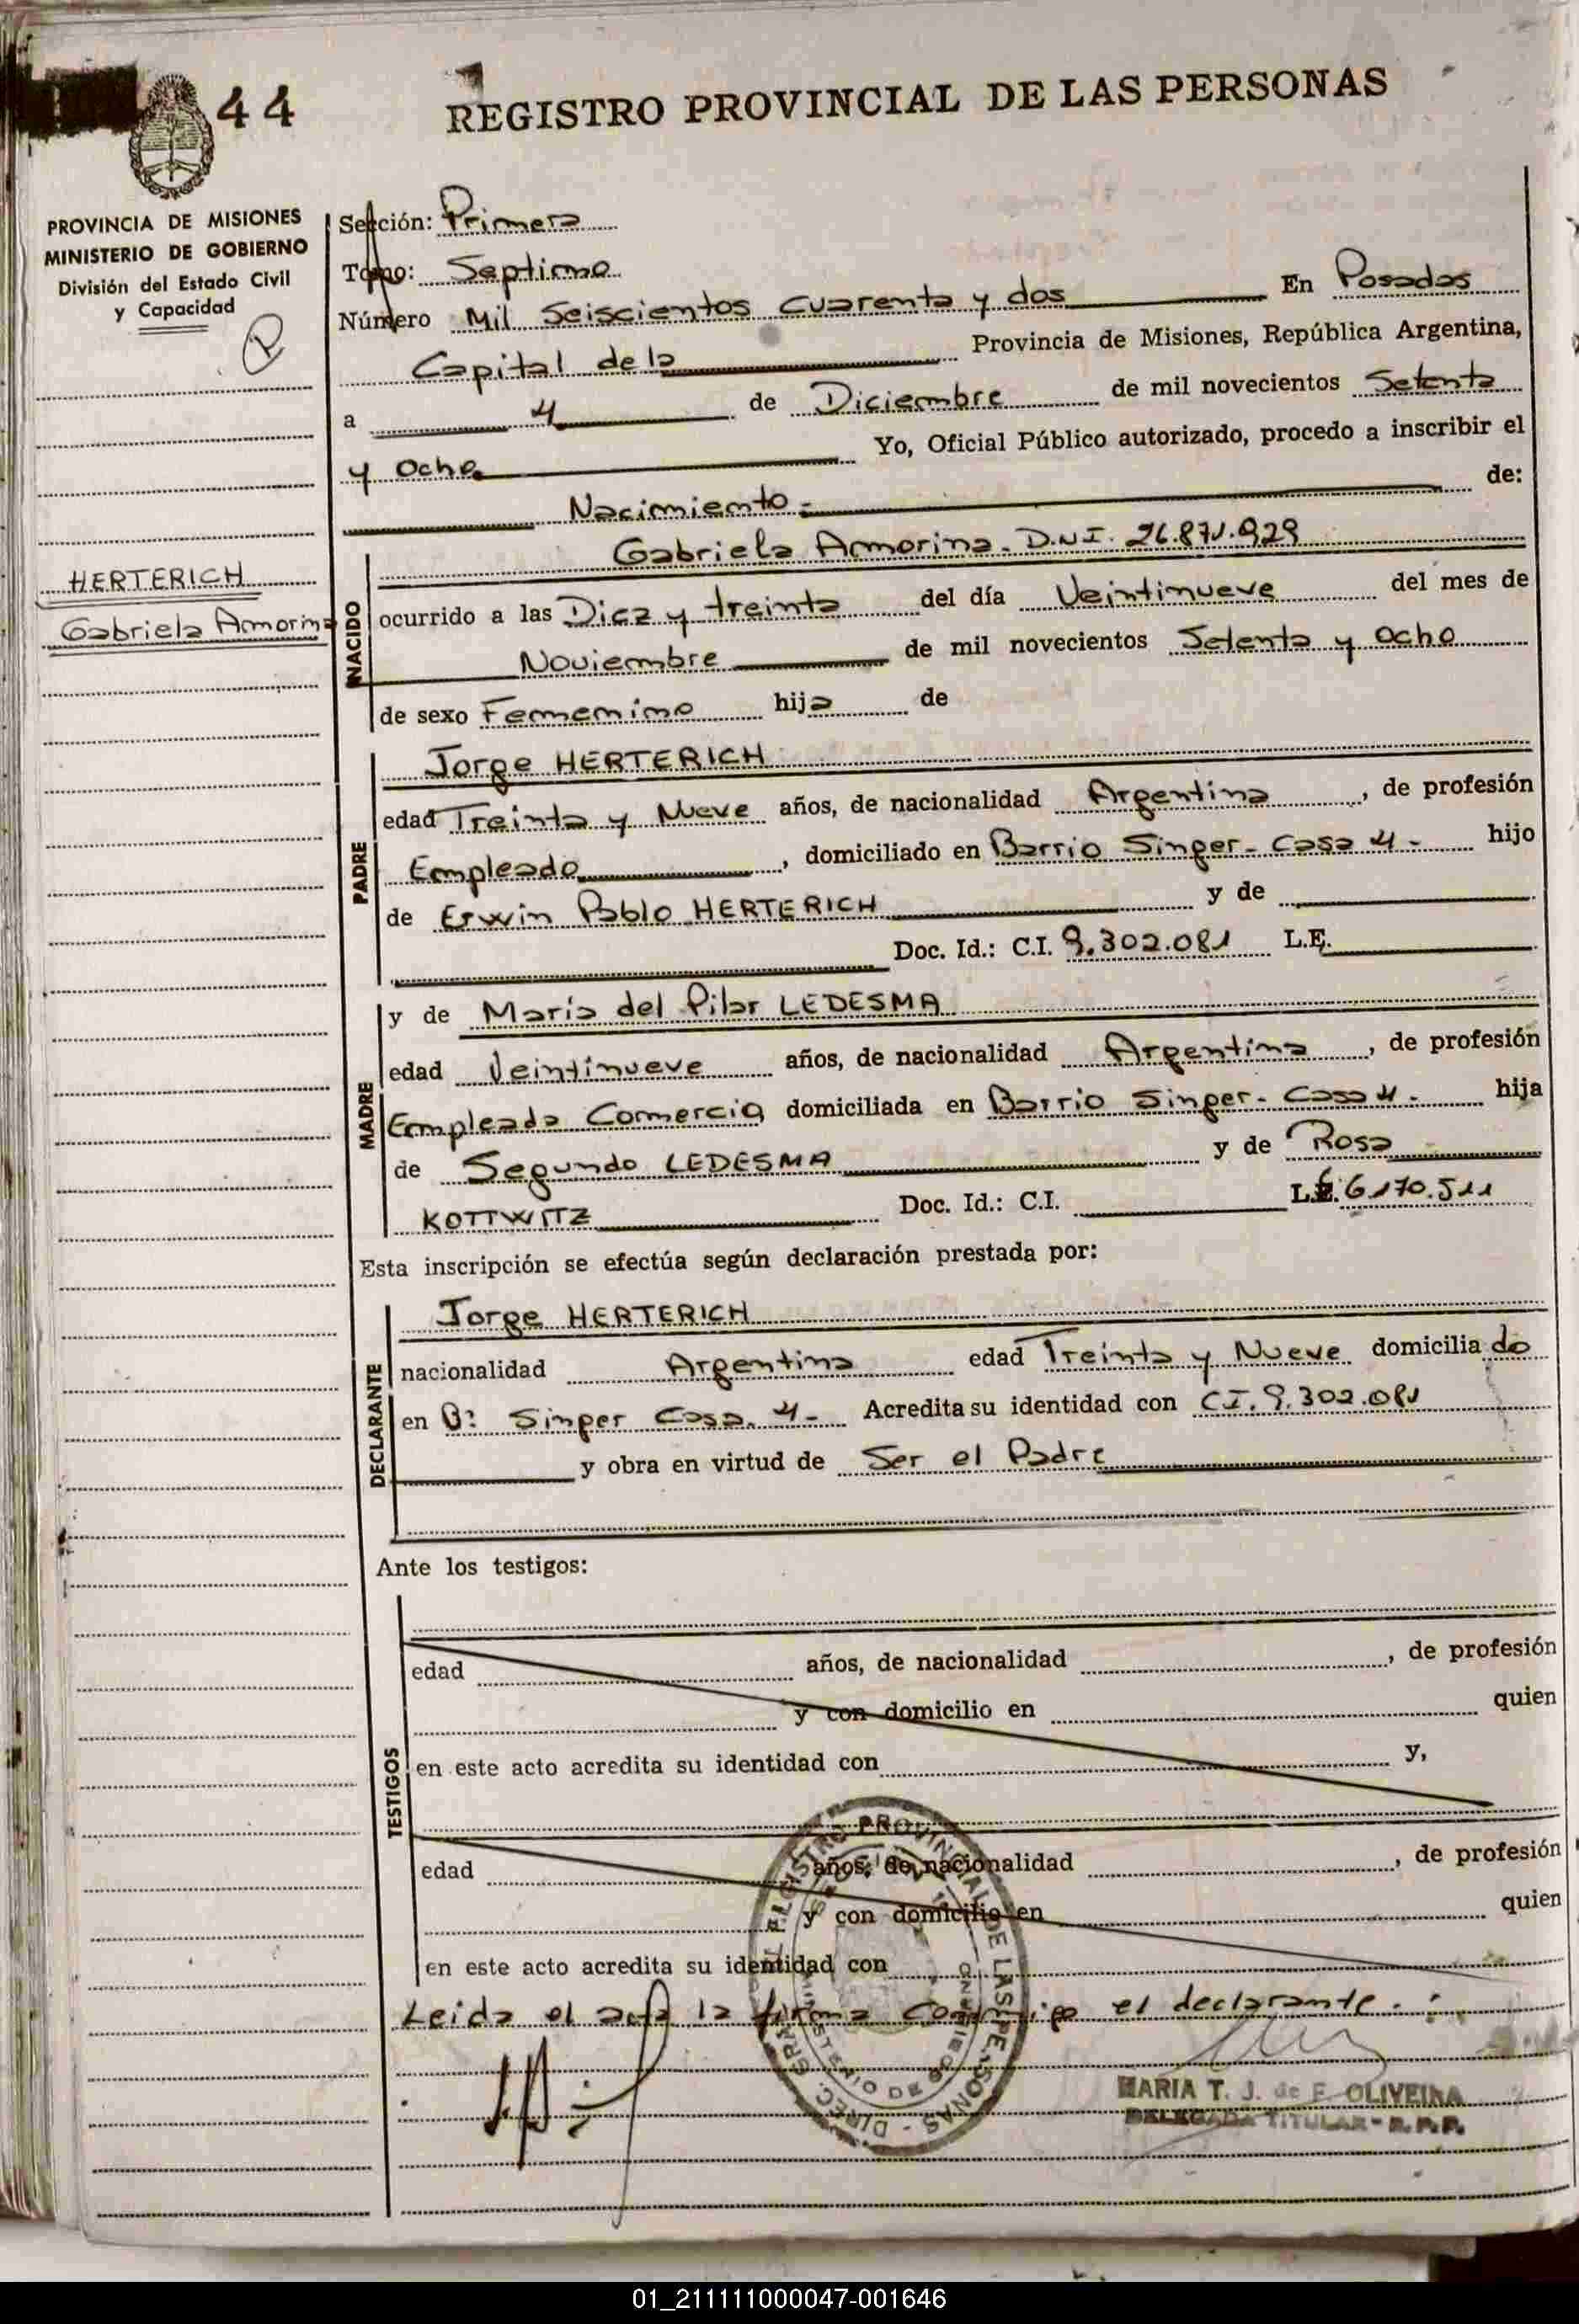 44
REGISTRO PROVINCIAL DE LAS PERSONAS
PROVINCIA DE MISIONES
MINISTERIO DE GOBIERNO
División del Estado Civil
y Capacidad
R
HERTERICH
Gabriela Amorina
Sección: Primera
Tomo: Septimo
Número Mil Seiscientos Cuarenta y dos En Posadas
Capital de la Provincia de Misiones, República Argentina,
a 4 de Diciembre de mil novecientos Setenta
y Ocho Yo, Oficial Público autorizado, procedo a inscribir el
Nacimiento.- de:
NACIDO
Gabriela Amorina. D.N.I. 26.871.929
ocurrido a las Diez y treinta del día Veintinueve del mes de
Noviembre de mil novecientos Setenta y Ocho
de sexo Femenino hija de
PADRE
Jorge HERTERICH
edad Treinta y Nueve años, de nacionalidad Argentina, de profesión
Empleado, domiciliado en Barrio Singer- Casa 4- hijo
de Erwin Pablo HERTERICH y de
Doc. Id.: C.I. 9.302.081 L.E.
MADRE
y de María del Pilar LEDESMA
edad Veintinueve años, de nacionalidad Argentina, de profesión
Empleada Comercio, domiciliada en Barrio Singer- Casa 4- hija
de Segundo LEDESMA y de Rosa
KOTTWITZ Doc. Id.: C.I. 6.170.511
Esta inscripción se efectúa según declaración prestada por:
DECLARANTE
Jorge HERTERICH
nacionalidad Argentina edad Treinta y Nueve domiciliado
en B: Singer Casa. 4- Acredita su identidad con CI. 9.302.081
y obra en virtud de Ser el Padre
Ante los testigos:
TESTIGOS
edad años, de nacionalidad , de profesión
y con domicilio en quien
en este acto acredita su identidad con y,
edad años, de nacionalidad , de profesión
y con domicilio en quien
en este acto acredita su identidad con
Leida el acta la firma conmigo el declarante.
DIREC. GRAL. REGISTRO PROVINCIAL DE LAS PERSONAS
MINISTERIO DE GOBIERNO
MARIA T. J. de F. OLIVEIRA
DELEGADA TITULAR - R.P.P.
01_211111000047-001646